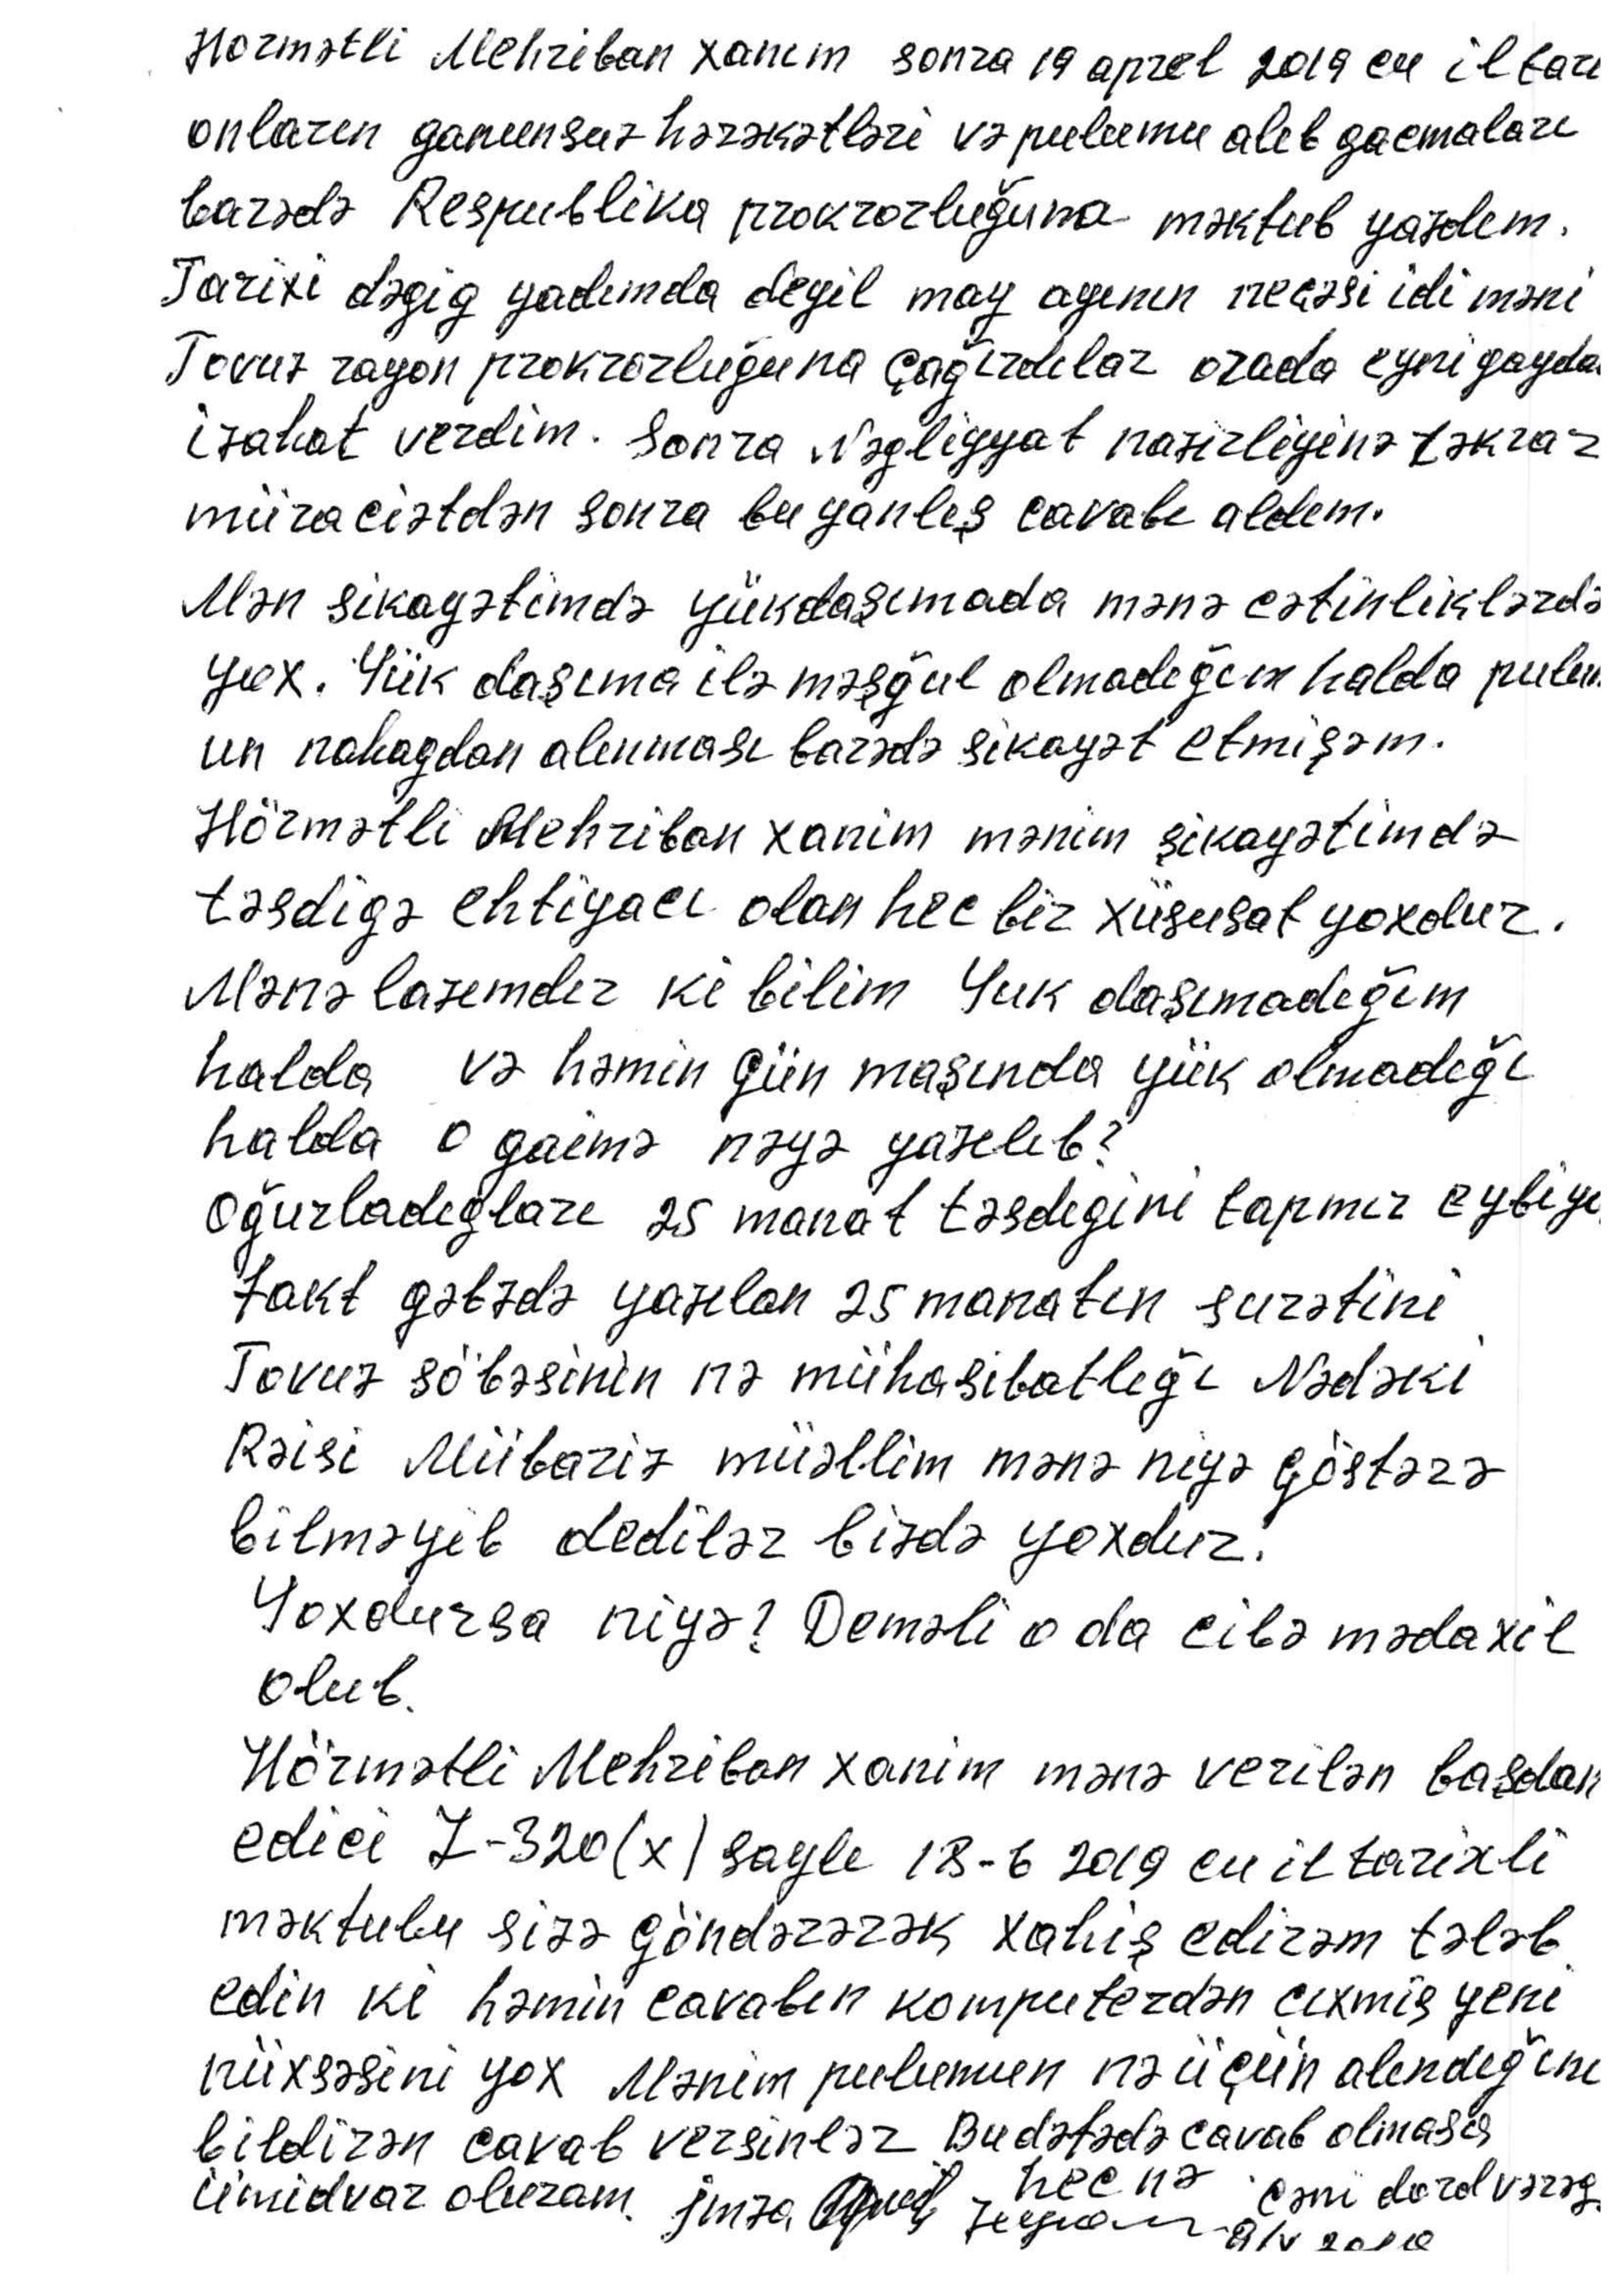 Hormətli Mehriban xanım sonra 19 aprel 2019 cu il tari
onların ganunsuz hərəkətləri və pulumu alıb gacmaları
barədə Respublika prokrorluğuna məktub yazdım.
Tarixi dəgig yadımda deyil may ayının neçəsi idi məni
Tovuz rayon prokrorluğuna çağırdılar orada eyni gayda
izahat verdim. Sonra Nəgliyyat nazirliyinə təkrar
müraciətdən sonra bu yanlış cavabı aldım.
Mən sikayətimdə yükdaşımada mənə cətinliklərdə
yox. Yük daşıma ilə məşğul olmadığım halda pulum
un nahagdan alınması barədə sikayət etmişəm.
Hörmətli Mehriban xanim mənim şikayətimdə
təsdigə ehtiyacı olan hec bir xüsusat yoxdur.
Mənə lazımdır ki bilim Yuk daşımadığım
halda və həmin gün maşında yük olmadığı
halda o gaimə nəyə yazılıb?
Oğurladıgları 25 manat təsdigini tapmır eybiyo
Fakt gəbzdə yazılan 25 manatın surətini
Tovuz söbəsinin nə mühasibatlığı Nədəki
Rəisi Mübariz müəllim mənə niyə göstərə
bilməyib dedilər bizdə yoxdur.
Yoxdursa niyə? Deməli o da cibə mədaxil
olub.
Hörmətli Mehriban xanim mənə verilən başdan
edici Z-320(x) saylı 18-6 2019 cu il tarixli
məktubu sizə göndərərək xahiş edirəm tələb
edin ki həmin cavabın komputerdən cıxmış yeni
nüxsəsini yox Mənim pulumun nə üçün alındığını
bildirən cavab versinlər Bu dəfədə cavab olmasa
hec nə
ümidvar oluram. İmza cəmi dord vərəg.